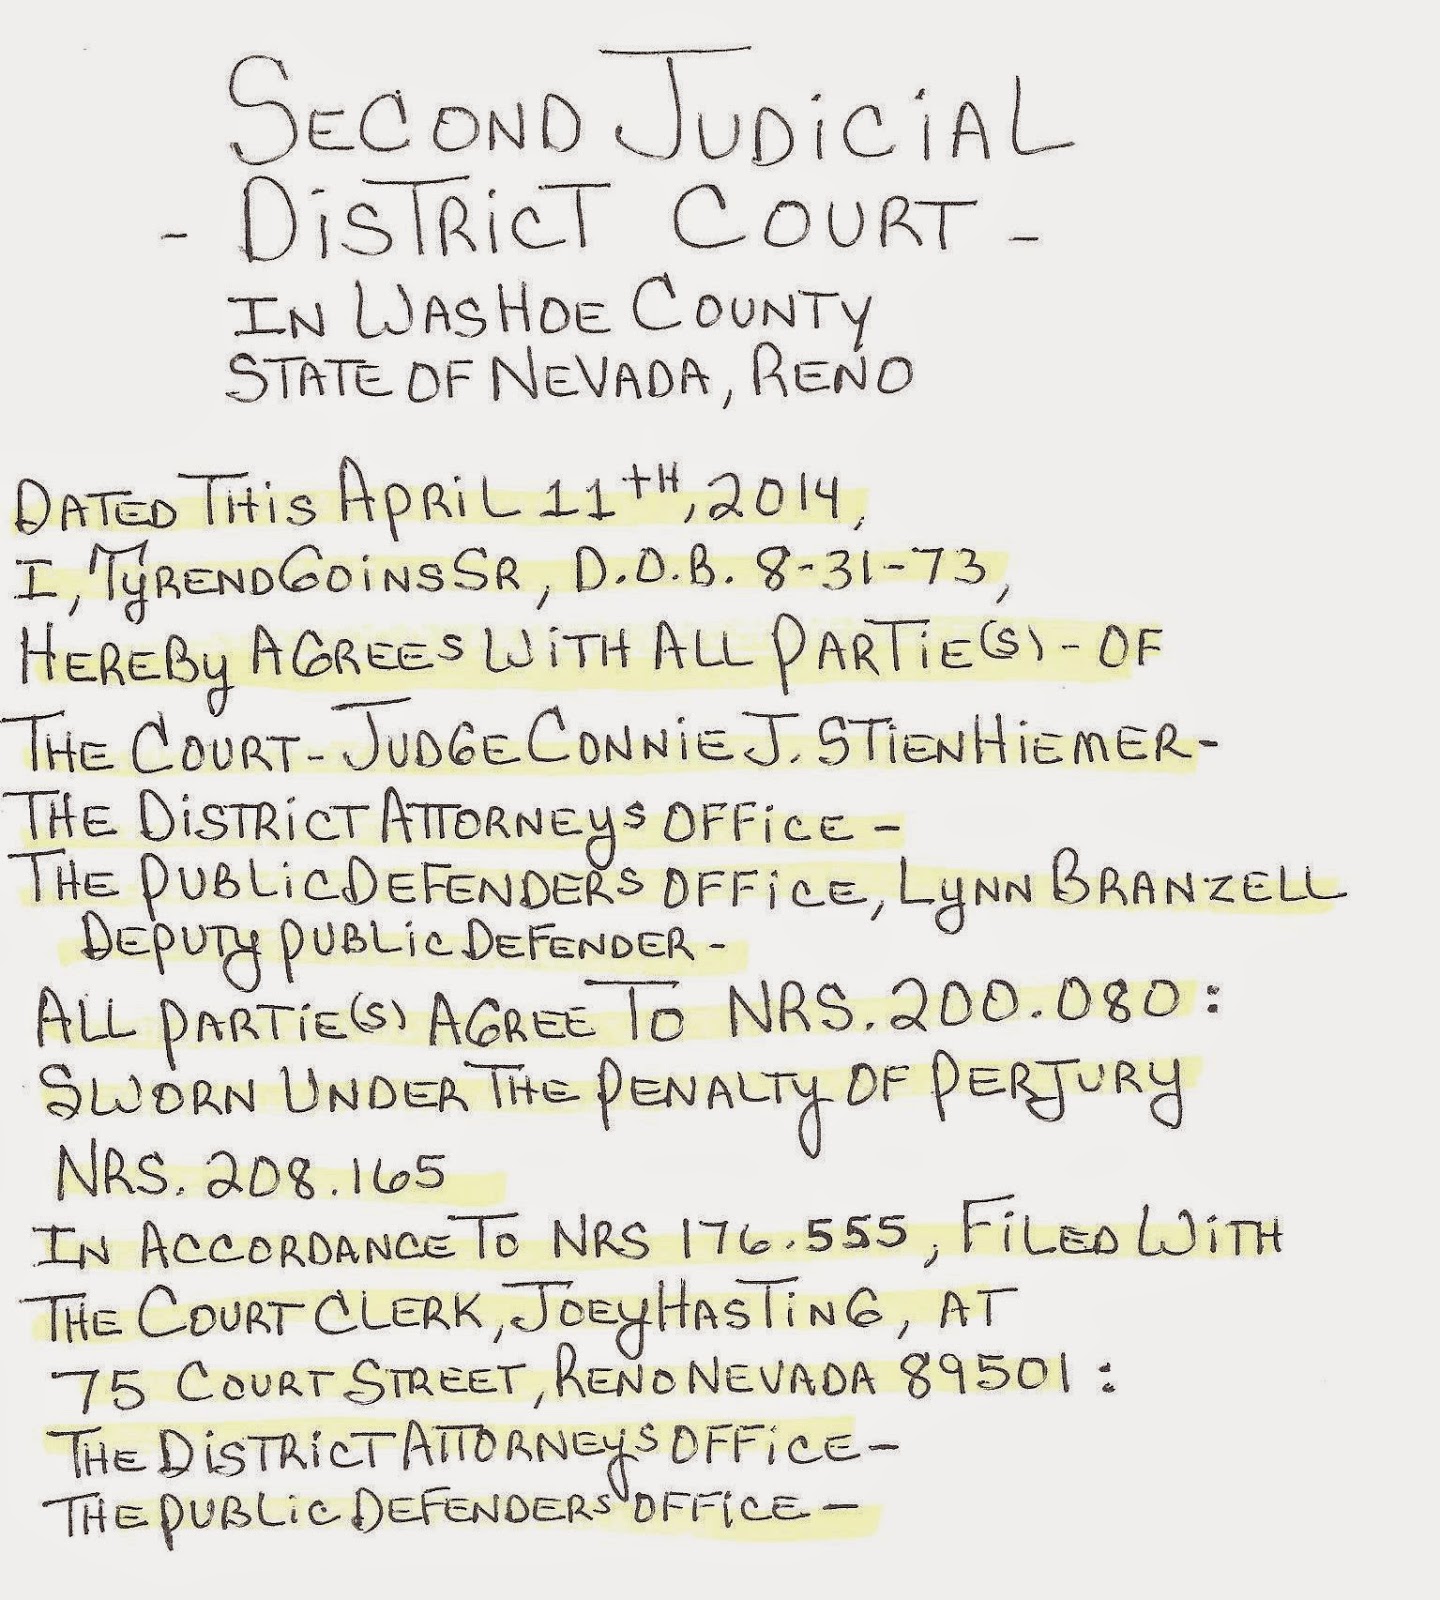 SECOND JUDICIAL
- DISTRICT COURT -
IN WASHOE COUNTY
STATE OF NEVADA, RENO
DATED THIS APRIL 11TH, 2014,
I, TYREND GOINS SR, D.O.B. 8-31-73,
HEREBY AGREES WITH ALL PARTIE(S) - OF
THE COURT - JUDGE CONNIE J. STIENHIEMER -
THE DISTRICT ATTORNEYS OFFICE -
THE PUBLIC DEFENDERS OFFICE, LYNN BRANZELL
DEPUTY PUBLIC DEFENDER -
ALL PARTIE(S) AGREE TO NRS. 200.080 :
SWORN UNDER THE PENALTY OF PERJURY
NRS. 208.165
IN ACCORDANCE TO NRS 176.555, FILED WITH
THE COURT CLERK, JOEY HASTING, AT
75 COURT STREET, RENO NEVADA 89501 :
THE DISTRICT ATTORNEYS OFFICE -
THE PUBLIC DEFENDERS OFFICE -